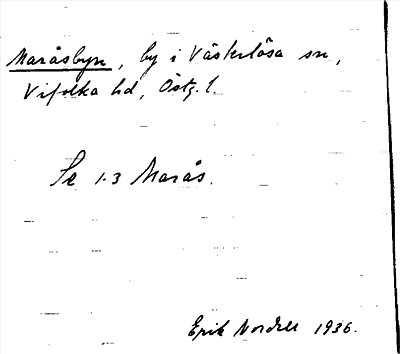 Maråsbyn, by i Västerlösa sn,
Vifolka hd, Östg. l.
Se 1-3 Marås.
Erik Nordell 1936.